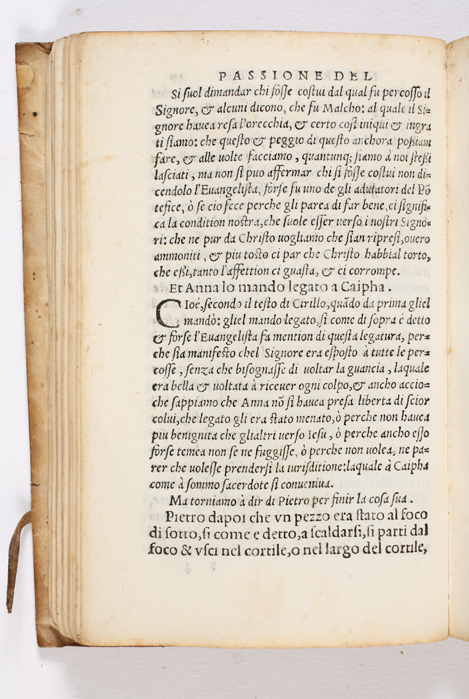 PASSIONE DEL
Si suol dimandar chi fosse costui dal qual fu percosso il
Signore, & alcuni dicono, che fu Malcho: al quale il Si-
gnore hauea resa l'orecchia, & certo così iniqui & ingra
ti siamo: che questo & peggio di questo anchora possiam
fare, & alle uolte facciamo, quantunq; siamo à noi stessi
lasciati, ma non si puo affermar chi si fosse costui non di-
cendolo l'Euangelista, forse fu uno de gli adulatori del Põ
tefice, ò se cio fece perche gli parea di far bene, ci signifi-
ca la condition nostra, che suole esser uerso i nostri Signo-
ri: che ne pur da Christo uogliamo che sian ripresi, ouero
ammoniti, & piu tosto ci par che Christo habbia'l torto,
che essi, tanto l'affettion ci guasta, & ci corrompe.
Et Anna lo mando legato a Caipha.
Cioè, secondo il testo di Cirillo, quãdo da prima gliel
mandò: gliel mando legato, si come di sopra è detto
& forse l'Euangelista fa mention di questa legatura, per-
che sia manifesto che'l Signore era esposto à tutte le per-
cosse, senza che bisognasse di uoltar la guancia, laquale
era bella & uoltata à riceuer ogni colpo, & ancho accio-
che sappiamo che Anna nõ si hauea presa liberta di scior
colui, che legato gli era stato menato, ò perche non hauea
piu benignita che gli altri uerso Iesu, ò perche ancho esso
forse temea non se ne fuggisse, ò perche non uolea, ne pa-
rer che uolesse prendersi la iurisditione: laquale à Caipha
come à sommo sacerdote si conueniua.
Ma torniamo à dir di Pietro per finir la cosa sua.
Pietro dapoi che vn pezzo era stato al foco
di sotto, si come e detto, a scaldarsi, si parti dal
foco & vsci nel cortile, o nel largo del cortile,